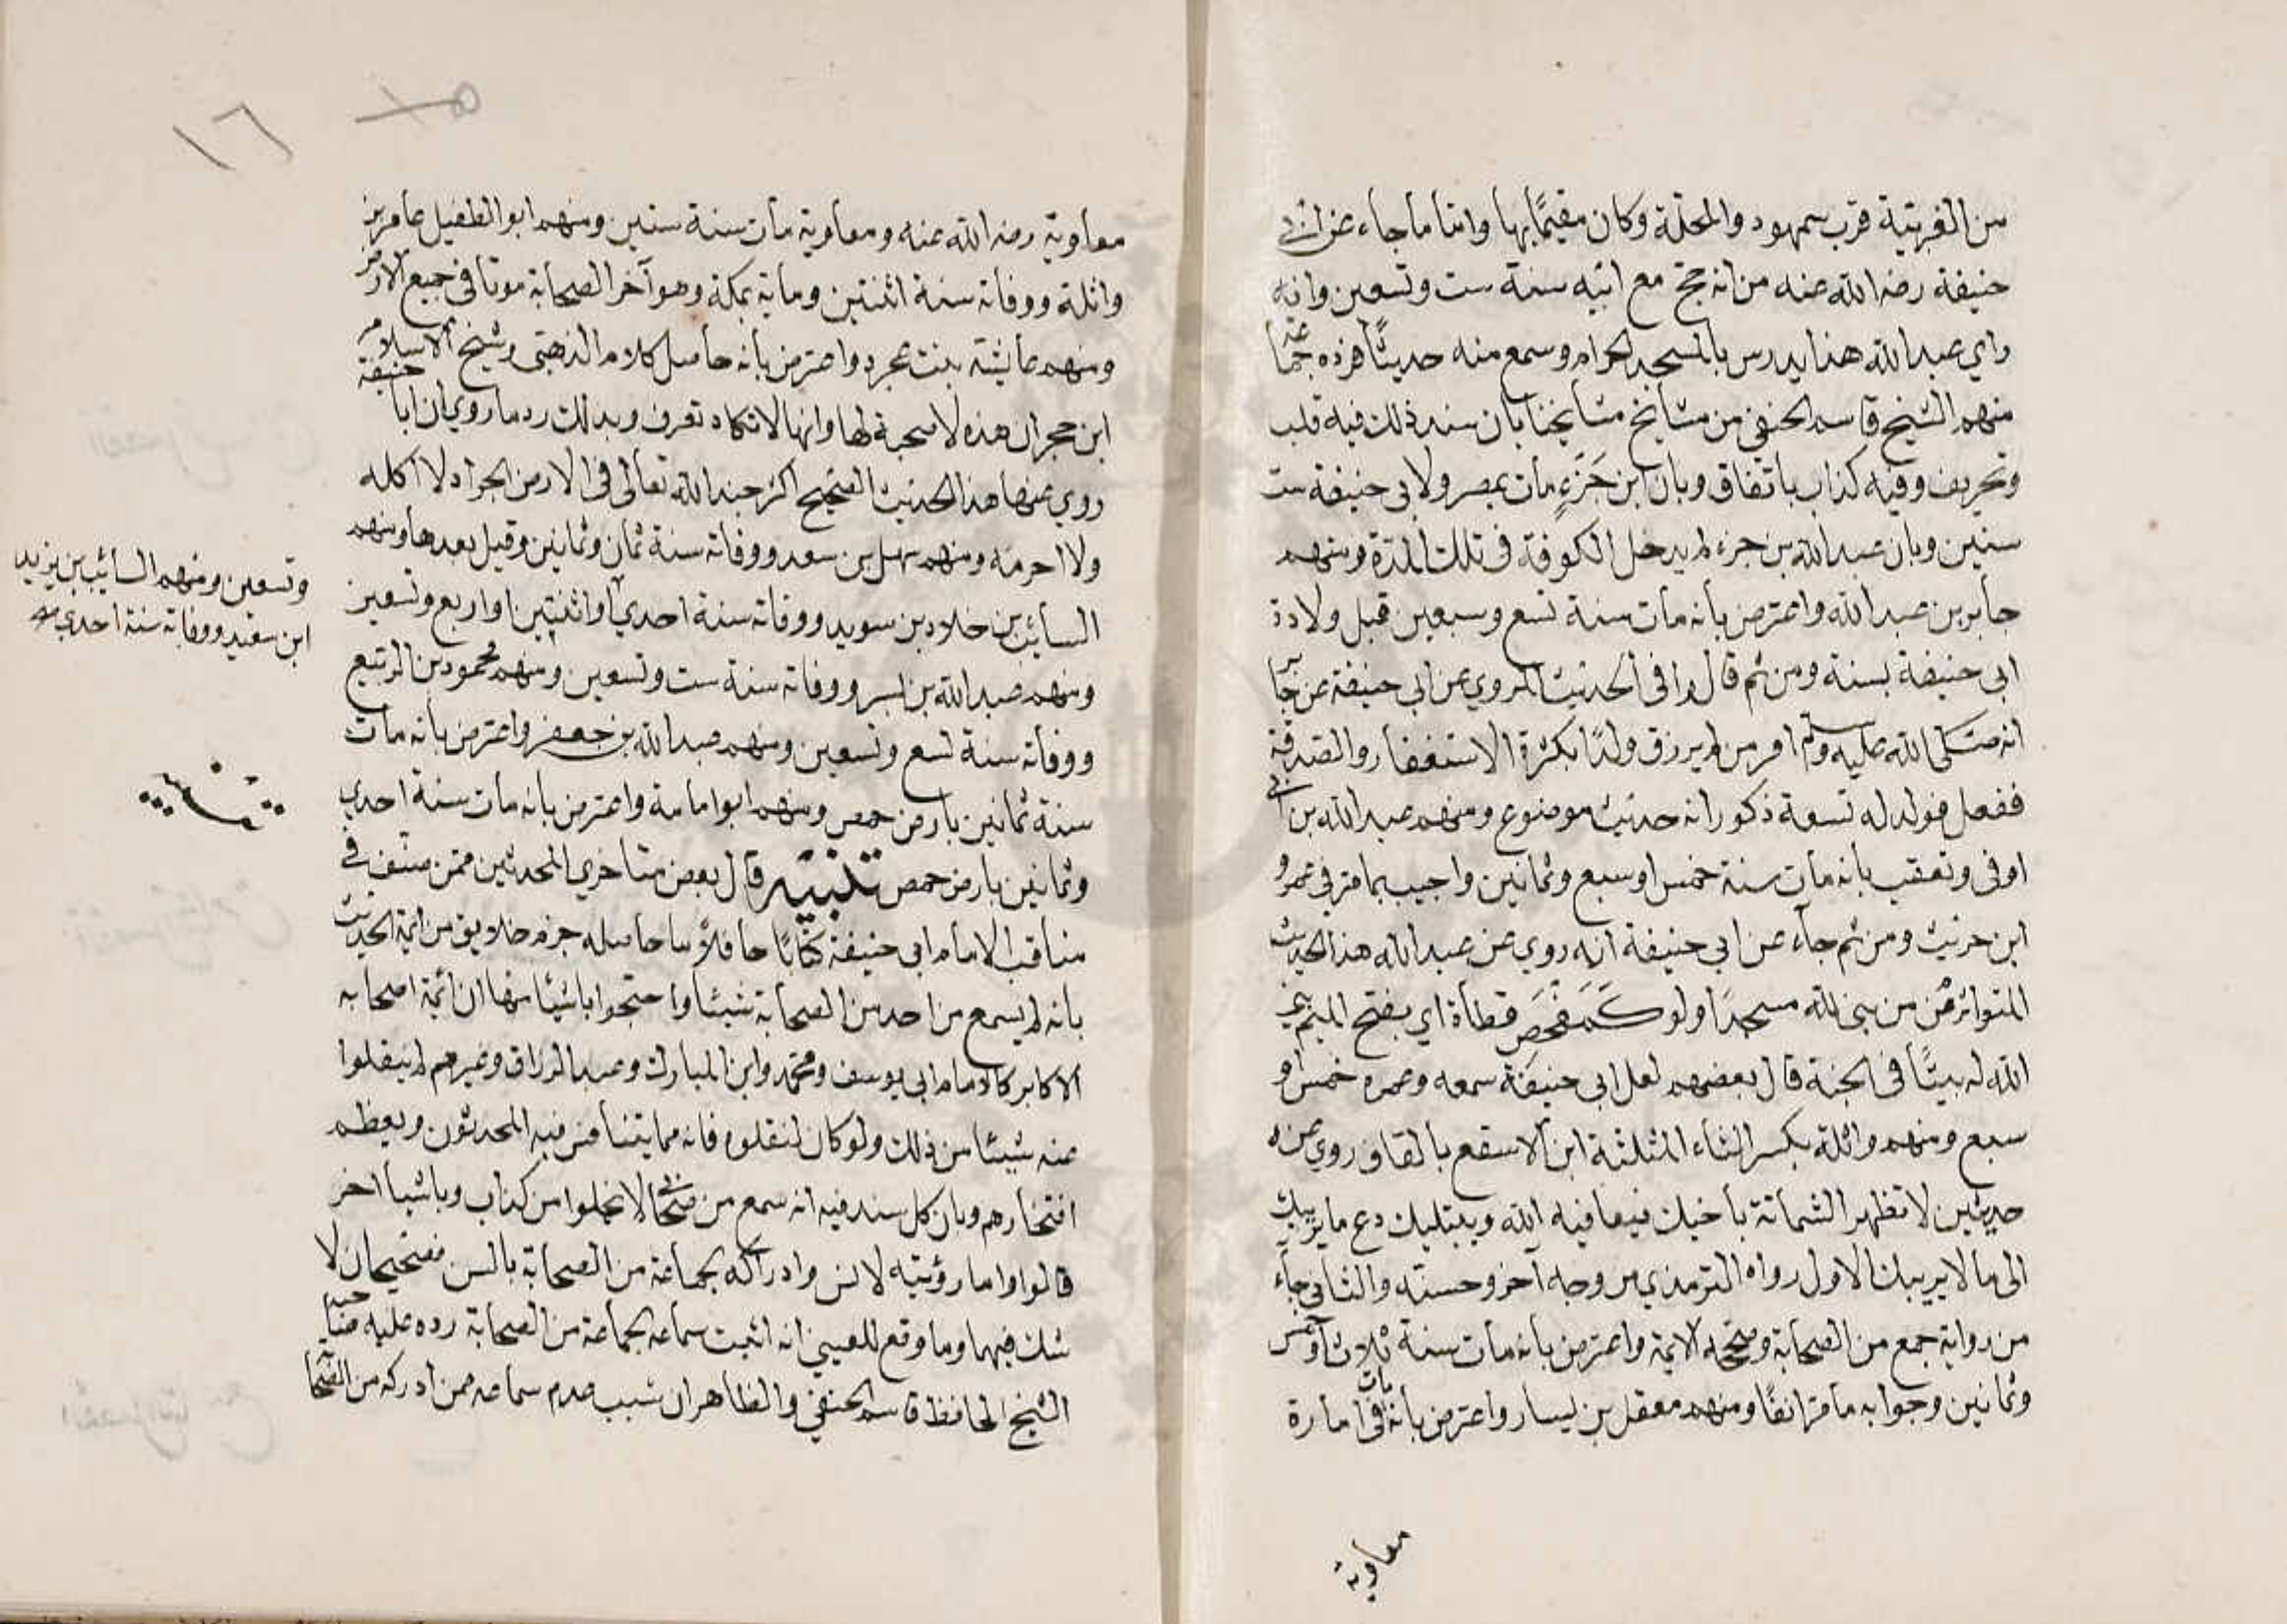 من الغربية قرب سمهود والمحلة وكان مقيمًا بها واما ما جاء عن ابي
حنيفة رضه الله عنه من انه حج مع ابيه سنة ست وتسعين وانه
راي عبد الله هذا يدرس بالمسجد الحرام وسمع منه حديثًا فرده جماعة
منهم الشيخ قاسم الحنفي من مشايخ مشايخنا بان سند ذلك فيه قلب
وتحريف وفيه كذاب باتفاق وبان ابن جَزْءٍ مات بمصر ولابي حنيفة ست
سنين وبان عبد الله بن جزء لم يدخل الكوفة في تلك المدة ومنهم
جابر بن عبد الله واعترض بأنه مات سنة تسع وسبعين قبل ولادة
ابي حنيفة بسنة ومن ثم قالوا في الحديث المروي عن ابي حنيفة عن جابر
انه صلى الله عليه وسلم امر من لم يرزق ولدًا بكثرة الاستغفار والصدقة
ففعل فولد له تسعة ذكور انه حديث موضوع ومنهم عبد الله بن ابي
اوفى وتعقب بانه مات سنة خمس او سبع وثمانين واجيب بما مر في عمرو
ابن حريث ومن ثم جاء عن ابي حنيفة انه روي عن عبد الله هذا الحديث
المتواتر من بنى لله مسجدًا ولو كَمَفْحَصِ قطاة اي بفتح الميم بنى
الله له بيتًا في الجنة قال بعضهم لعل ابي حنيفة سمعه وعمره خمس او
سبع ومنهم واثلة بكسر الثاء المثلثة ابن الاسقع بالقاف روي عنه
حديثين لا تظهر الشماتة باخيك فيعافيه الله ويبتليك دع ما يريبك
الى ما لا يريبك الاول رواه الترمذي من وجه آخر وحسنه والثاني جاء
من رواية جمع من الصحابة وصححه الايمة واعترض بأنه مات سنة ثلاث او خمس
وثمانين وجوابه ما مر انفًا ومنهم معقل بن يسار واعترض بأنه مات في امارة
معاوية
١٦
معاوية رضه الله عنه ومعاوية مات سنة ستين ومنهم ابو الطفيل عامر بن
واثلة ووفاته سنة اثنتين وماية بمكة وهو آخر الصحابة موتا في جميع الارض
ومنهم عايشة بنت عجرد واعترض بأنه حاصل كلام الذهبي وشيخ الاسلام
ابن حجر ان هذه لا صحبة لها وانها لا تكاد تعرف وبذلك رد ما روي ان ابا حنيفة
روي عنها هذا الحديث الصحيح اكثر جند الله تعالى في الارض الجراد لا آكله
ولا احرمه ومنهم سهل بن سعد ووفاته سنة ثمان وثمانين وقيل بعدها ومنهم
السائب بن خلاد بن سويد ووفاته سنة احدي او اثنتين او اربع وتسعين
وتسعين ومنهم السائب بن يزيد
ابن سعيد ووفاته سنة احدي
ومنهم عبد الله بن بسر ووفاته سنة ست وتسعين ومنهم محمود بن الربيع
ووفاته سنة تسع وتسعين ومنهم عبد الله بن جعفر واعترض بأنه مات
سنة ثمانين بارض حمص ومنهم ابو امامة واعترض بأنه مات سنة احدي
تنبيه
وثمانين بارض حمص تنبيه قال بعض متاخري المحدثين ممن صنف في
مناقب الامام ابي حنيفة كتابًا حافلًا ما حاصله جزم خلايق من ايمة الحديث
بانه لم يسمع من احد من الصحابة شيئا واحتجوا باشيئا منها ان ائمة اصحابه
الاكابر كالامام ابي يوسف ومحمد وابن المبارك وعبد الرزاق وغيرهم لم ينقلوا
عنه شيئا من ذلك ولو كان لنقلوه فانه مما يتنافس فيه المحدثون ويعظم
افتخارهم وبان كل سند فيه انه سمع من صحابي لا يخلوا من كذاب وباشيا اخر
قالوا واما رؤيته لانس وادراكه لجماعة من الصحابة بالسن فصحيحان لا
شك فيهما وما وقع للعيني انه اثبت سماعه لجماعة من الصحابة رده عليه صاحبه
الشيخ الحافظ قاسم الحنفي والظاهر ان سبب عدم سماعه ممن ادركه من الصحابة